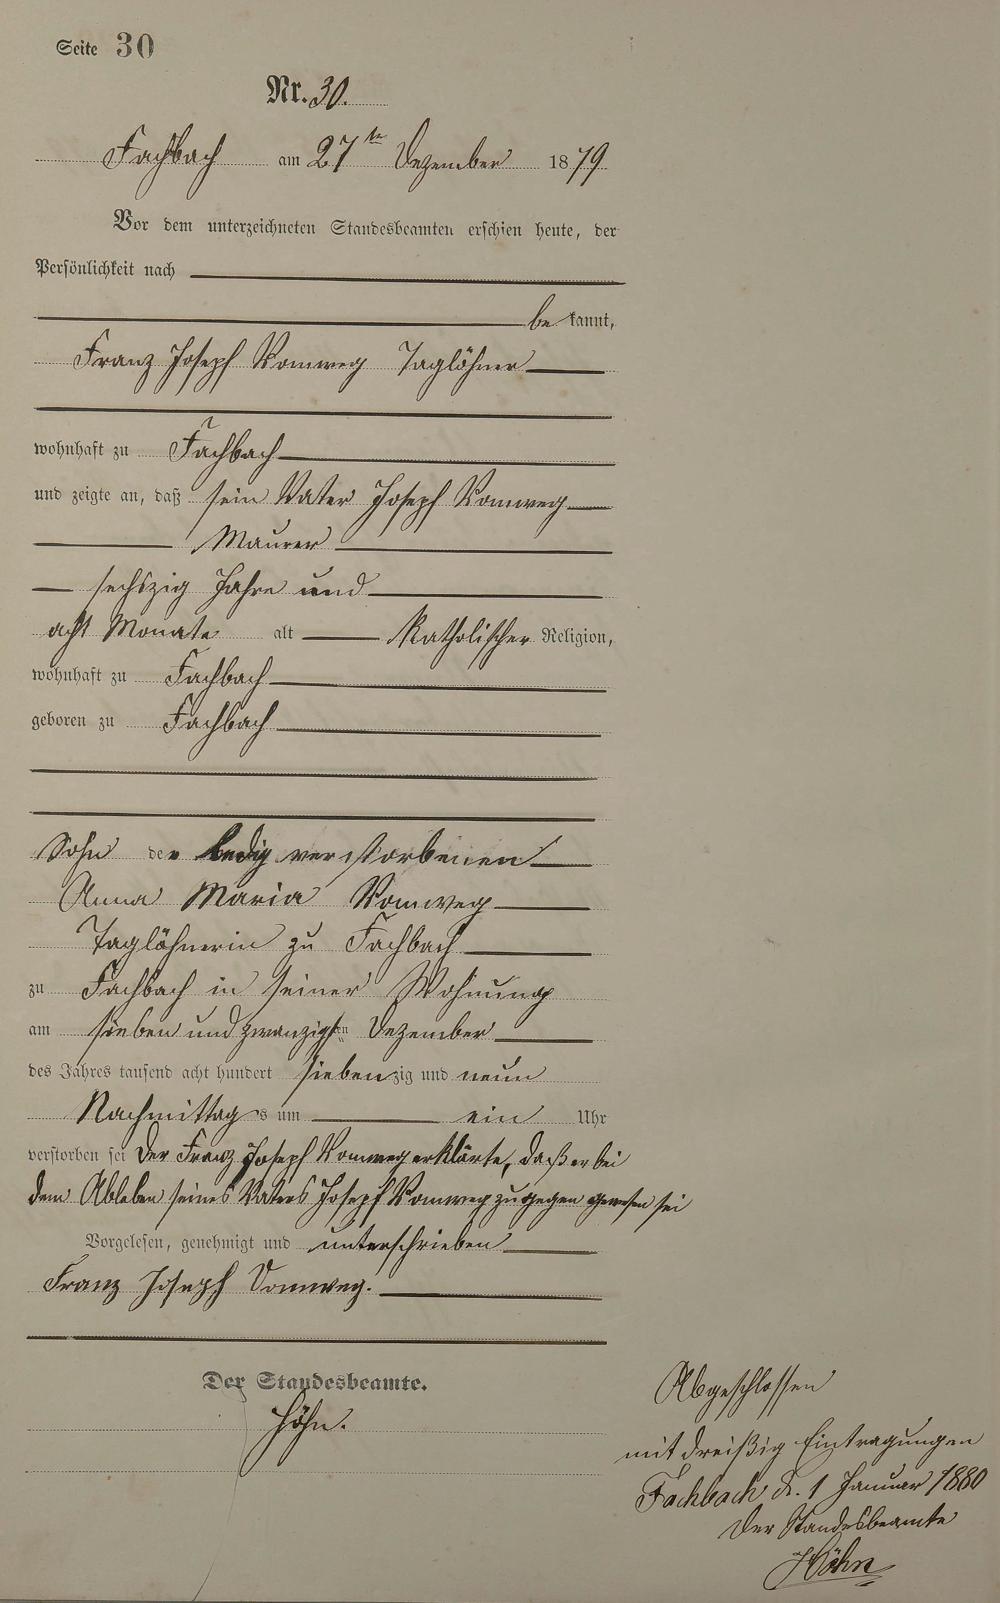 Seite 30
Nr. 30.
Fachbach am 27ten Dezember 1879
Vor dem unterzeichneten Standesbeamten erschien heute, der
Persönlichkeit nach
bekannt,
Franz Joseph Vomweg Taglöhner
wohnhaft zu Fachbach
und zeigte an, daß sein Vater Joseph Vomweg
Maurer
sechszig Jahre und
acht Monate alt Katholischer Religion,
wohnhaft zu Fachbach
geboren zu Fachbach
Sohn der ledig verstorbenen
Anna Maria Vomweg
Taglöhnerin zu Fachbach
zu Fachbach in seiner Wohnung
am sieben und zwanzigsten Dezember
des Jahres tausend acht hundert siebenzig und neun
Nachmittags um ein Uhr
verstorben sei Der Franz Joseph Vomweg erklärte, daß er bei
dem Ableben seines Vaters Joseph Vomweg zugegen gewesen sei
Vorgelesen, genehmigt und unterschrieben
Franz Joseph Vomweg.
Der Standesbeamte.
Höhn.
Abgeschlossen
mit dreißig Eintragungen
Fachbach d. 1 Januar 1880
Der Standesbeamte
Höhn